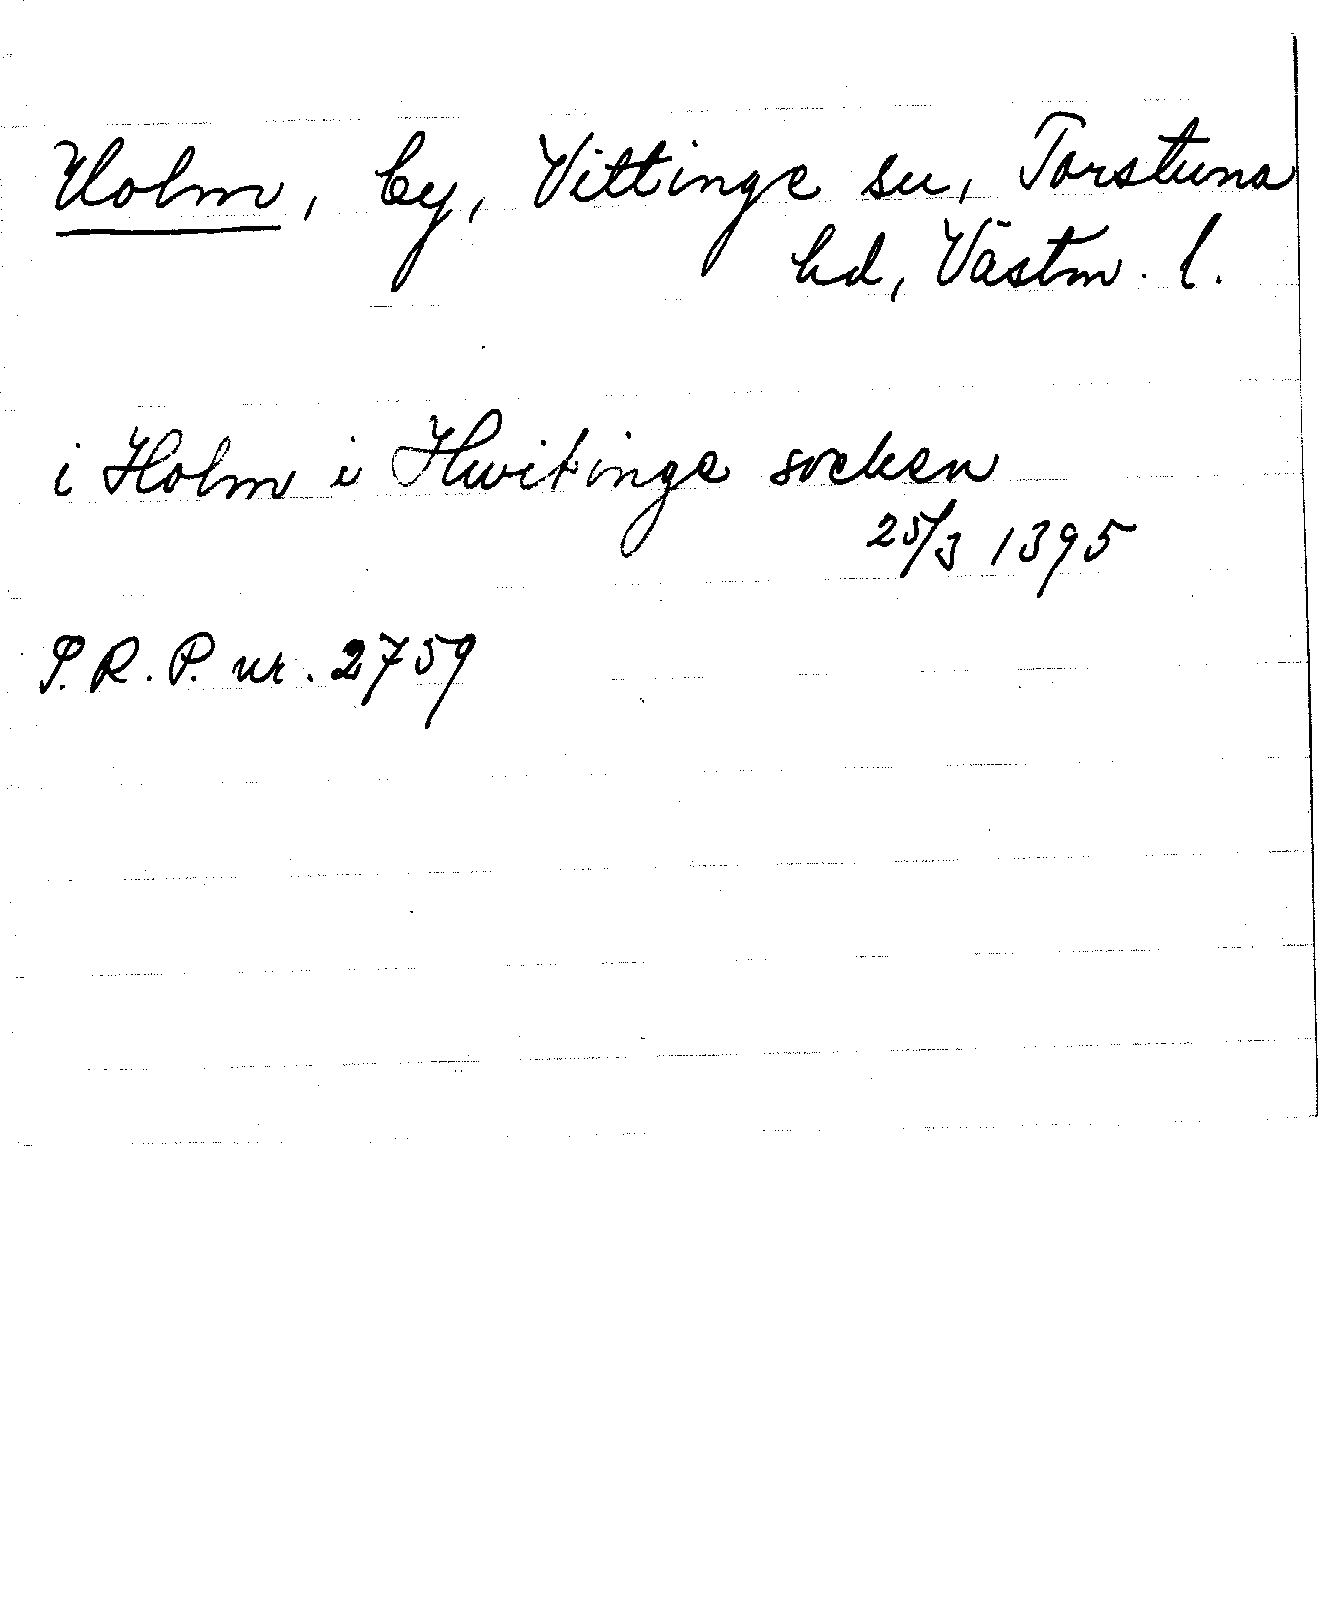 Holm, by, Vittinge sn, Torstuna
hd, Västm. l.
i Holm i Hwitinge socken
25/3 1395
S.R.P. nr. 2759